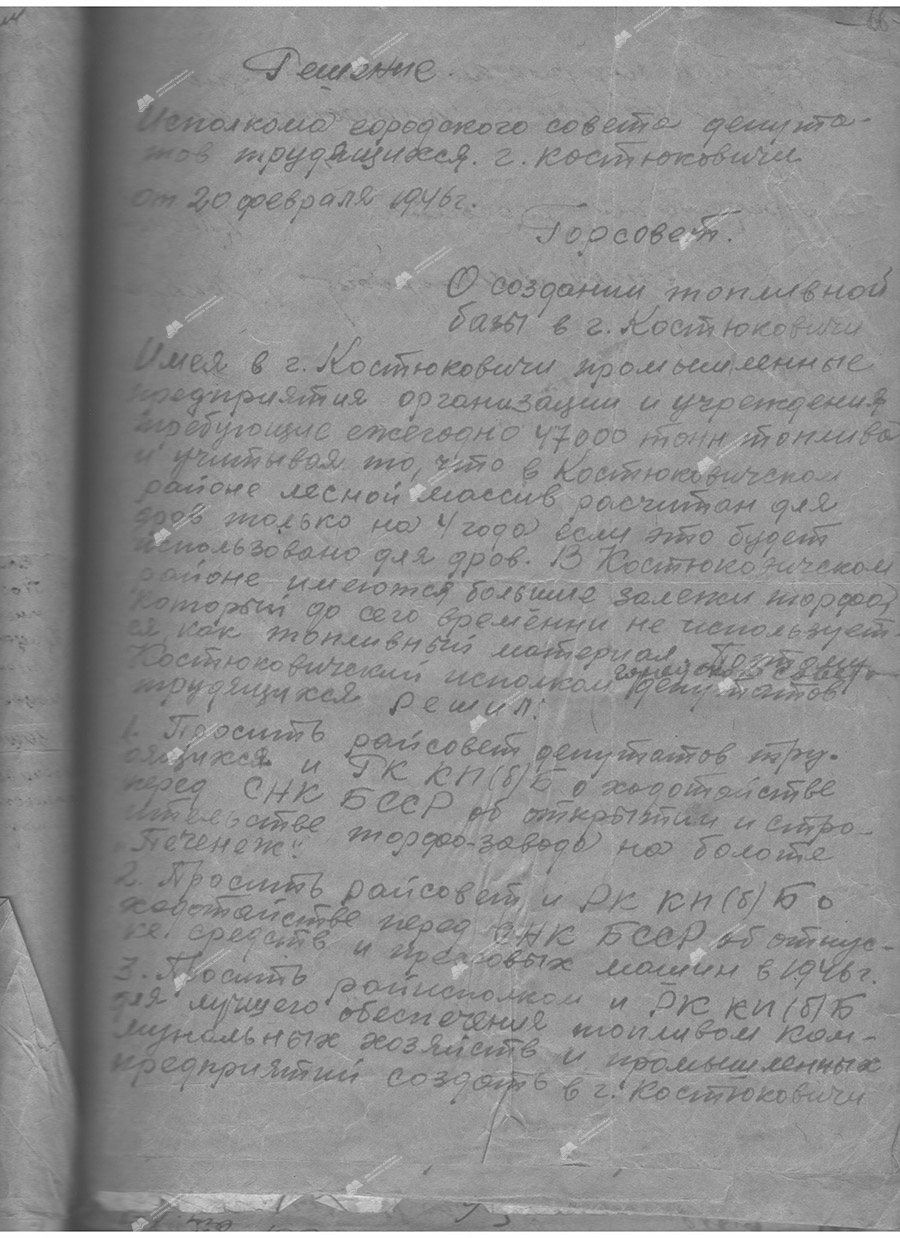 66
Решение
Исполкома городского совета депута-
тов трудящихся. г. Костюковичи
от 20 февраля 1946 г.
Горсовет.
О создании топливной
базы в г. Костюковичи
Имея в г. Костюковичи промышленные
предприятия организации и учреждения
требующие ежегодно 47000 тонн топлива
и учитывая то, что в Костюковичском
районе лесной массив расчитан для
дров только на 4 года если это будет
использовано для дров. В Костюковичском
районе имеются большие залежи торфа,
который до сего временни не использует-
ся, как топливный материал. Поэтому
Костюковичский исполком городского совета
депутатов
трудящихся Решил:
1. Просить райсовет депутатов тру-
дящихся и РК КП(б)Б о ходотайстве
перед СНК БССР об открытии и стро-
ительстве торфо-завода на болоте
„Печенеж".
2. Просить райсовет и РК КП(б)Б о
ходотайстве перед СНК БССР об отпус-
ке средств и машин в 1946 г.
3. Просить райисполком и РК КП(б)Б
для лучшего обеспечения топливом ком-
мунальных хозяйств и промышленных
предприятий создать в г. Костюковичи